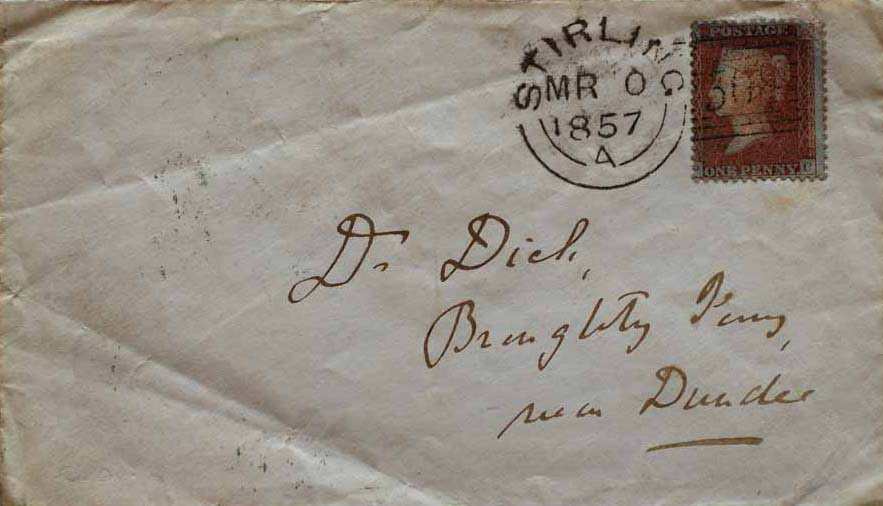 STIRLING
MR 0
1857
A
POSTAGE
ONE PENNY C
Dr Dick,
Broughty Ferry,
near Dundee